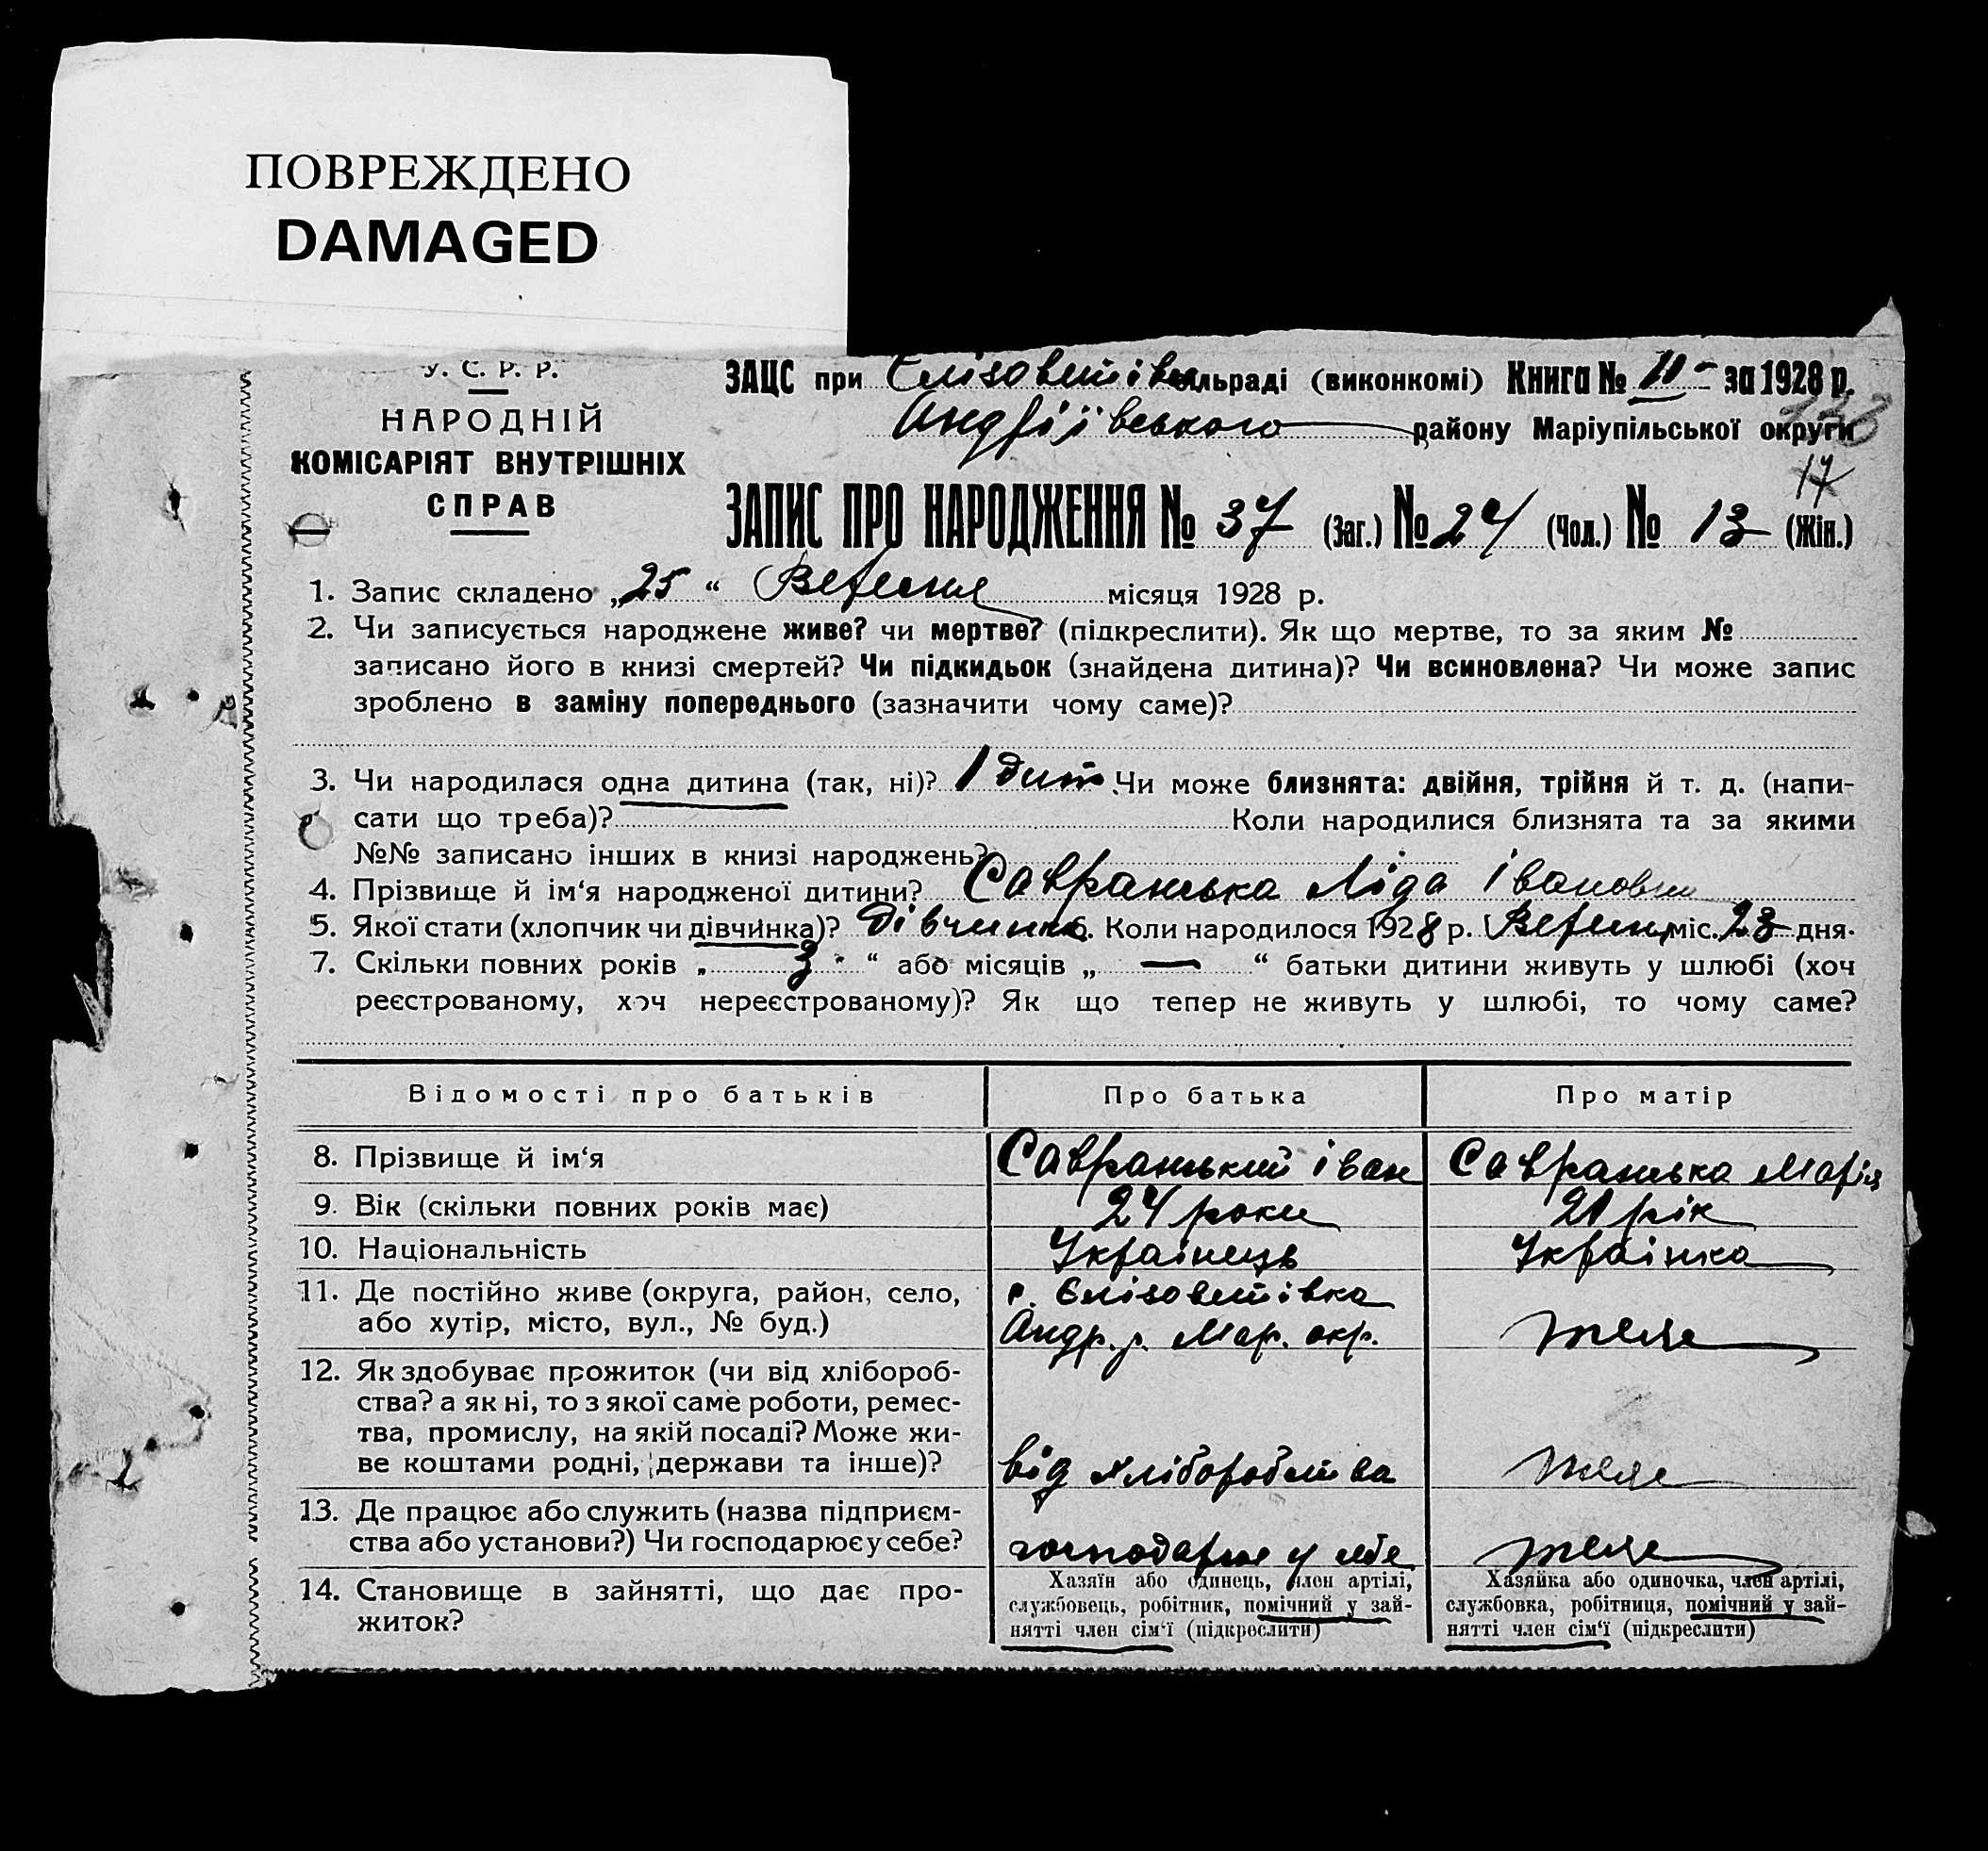 ПОВРЕЖДЕНО
DAMAGED
У. С. Р. Р.
НАРОДНІЙ
КОМІСАРІЯТ ВНУТРІШНІХ
СПРАВ
ЗАЦС при Єлізоветівс ільраді (виконкомі) Книга № II - за 1928 р.
Андріївського району Маріупільської округи
17
ЗАПИС ПРО НАРОДЖЕННЯ № 37 (Заг.) № 24 (Чол.) № 13 (Жін.)
1. Запис складено „25“ Вересня місяця 1928 р.
2. Чи записується народжене живе? чи мертве? (підкреслити). Як що мертве, то за яким №
записано його в книзі смертей? Чи підкидьок (знайдена дитина)? Чи всиновлена? Чи може запис
зроблено в заміну попереднього (зазначити чому саме)?
3. Чи народилася одна дитина (так, ні)? 1 дит Чи може близнята: двійня, трійня й т. д. (напи-
сати що треба)? Коли народилися близнята та за якими
№№ записано інших в книзі народжень?
4. Прізвище й ім‘я народженої дитини? Савранська Ліда Івановна
5. Якої стати (хлопчик чи дівчинка)? Дівчинка 6. Коли народилося 1928 р. Вересня міс. 23 дня.
7. Скільки повних років „ 3 “ або місяців „ — “ батьки дитини живуть у шлюбі (хоч
реєстрованому, хоч нереєстрованому)? Як що тепер не живуть у шлюбі, то чому саме?
Відомості про батьків Про батька Про матір
8. Прізвище й ім‘я Савранський Іван Савранська Марія
9. Вік (скільки повних років має) 24 роки 21 рік
10. Національність Українець Українка
11. Де постійно живе (округа, район, село, с. Єлізоветівка
або хутір, місто, вул., № буд.) Андр. р. Мар. окр. теж
12. Як здобуває прожиток (чи від хлібороб-
ства? а як ні, то з якої саме роботи, ремес-
тва, промислу, на якій посаді? Може жи-
ве коштами родні, держави та інше)? від хліборобства теж
13. Де працює або служить (назва підприєм-
ства або установи?) Чи господарює у себе? господарює у себе теж
14. Становище в зайнятті, що дає про-
житок?
Хазяїн або одинець, член артілі,
службовець, робітник, помічний у зай-
нятті член сім‘ї (підкреслити)
Хазяйка або одиночка, член артілі,
службовка, робітниця, помічний у зай-
нятті член сім‘ї (підкреслити)